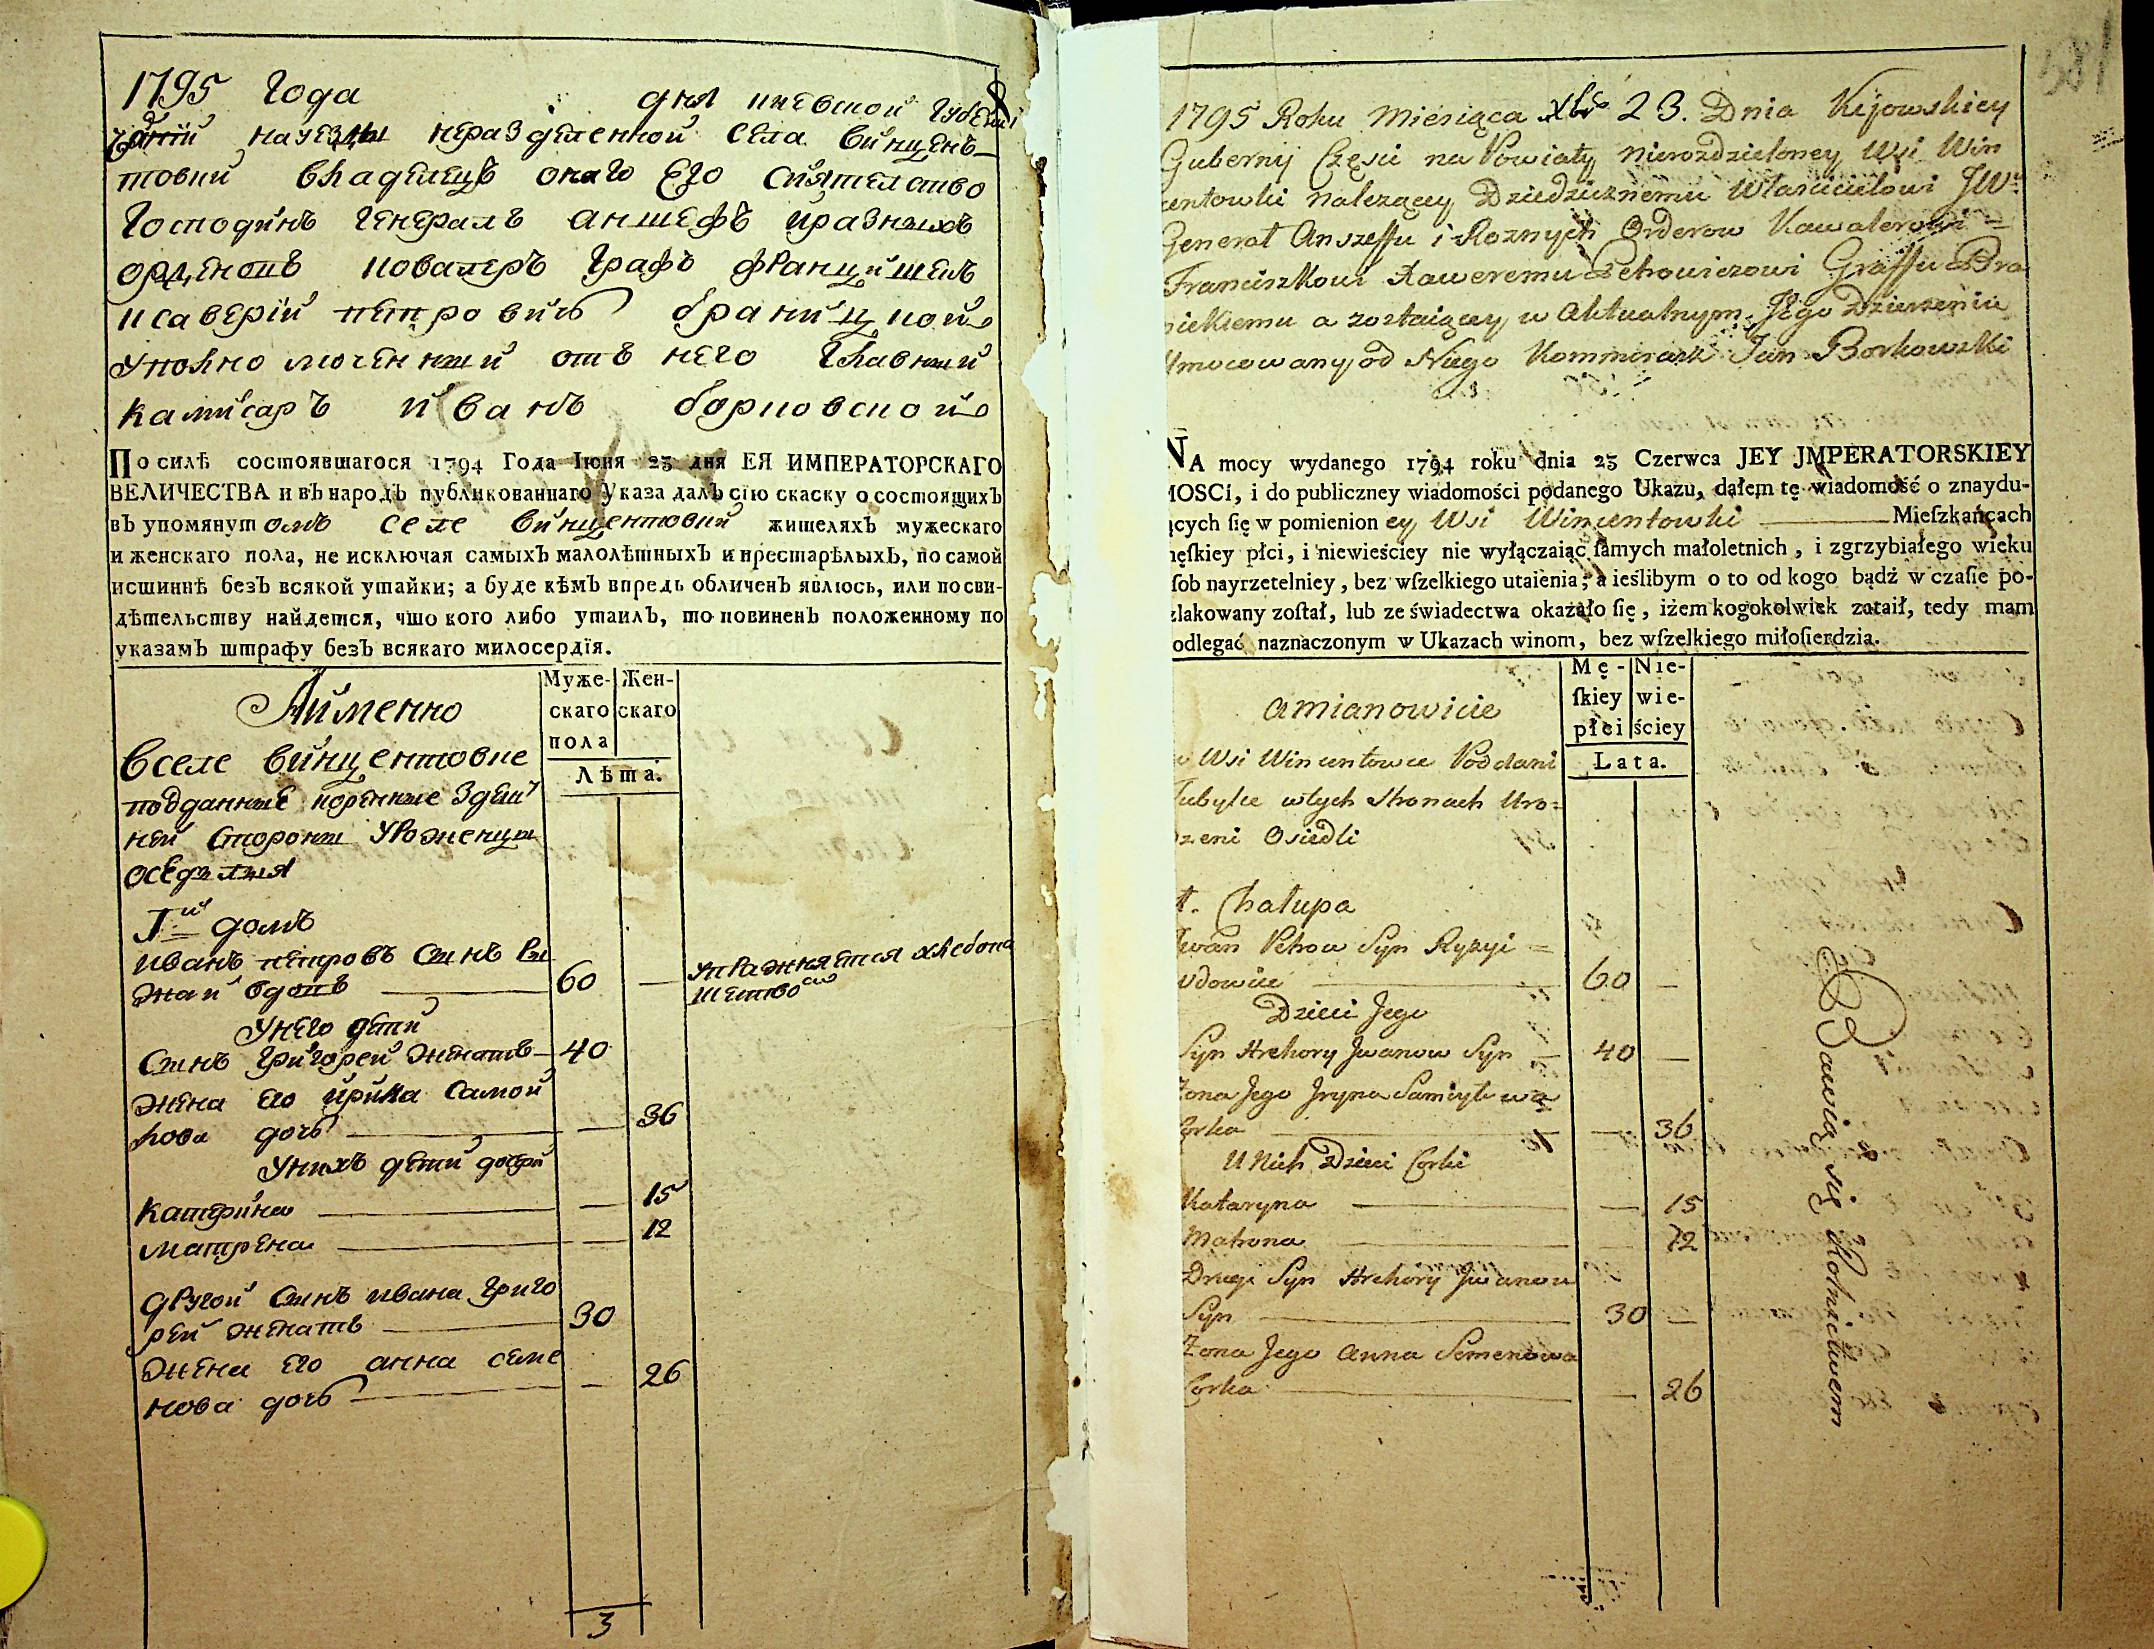 1795 Года дня киевской Губерні
части науезды неразделенной села винцен-
товки владелецъ онаго Его сиятелство
Господинъ Генералъ аншефъ иразныхъ
орденовъ ковалеръ Графъ Францишекъ
ксаверій петровичь браницкой
уполномоченный отъ него Главный
камисаръ иванъ борковской
По силѣ состоявшагося 1794 Года Іюня 23 дня ЕЯ ИМПЕРАТОРСКАГО
ВЕЛИЧЕСТВА и въ народъ публикованнаго Указа далъ сію скаску о состоящихъ
въ упомянутомъ селе винцентовки жителяхъ мужескаго
и женскаго пола, не исключая самыхъ малолѣтныхъ и престарѣлыхъ, по самой
истиннѣ безъ всякой утайки; а буде кѣмъ впредь обличенъ явлюсь, или по сви-
дѣтельству найдется, что кого либо утаилъ, то повиненъ положенному по
указамъ штрафу безъ всякаго милосердїя.
Муже- Жен-
скаго скаго
пола
Лѣта.
Аименно
вселе винцентовке
подданные коренные здеш
ней стороны уроженцы
оседлыя
1й домъ
иванъ петровъ сынъ ры
жай вдовъ 60 —
упражняется хлебопа
шествомъ
унего дети
сынъ Григорей женатъ 40
жена его ирина самой
лова дочь — 36
унихъ дети дочери
катерина — 15
матрена — 12
другой сынъ ивана Григо
рей женатъ 30
жена его анна семе
нова дочь — 26
3
581
1795 Roku Miesiąca Xbr 23. Dnia Kijowskiey
Gubernij Części na Powiaty nierozdzieloney Wsi Win
entowki należącey Dziedzicznemu Właścicielowi JW
General Anszeffu i Roznych Orderow Kawalerowi
Franciszkowi Xaweremu Petrowiczowi Graffu Bra
nickiemu a zostaiącey w Aktualnym Jego Dzierżeniu
Umocowany od Niego Kommisarz Jan Borkowski
NA mocy wydanego 1794 roku dnia 23 Czerwca JEY JMPERATORSKIEY
MOSCi, i do publiczney wiadomości podanego Ukazu, dałem tę wiadomość o znaydu-
ących ſię w pomienioney Wsi Wincentowki Mieſzkańcach
ęſkiey płci, i niewieściey nie wyłączaiąc ſamych małoletnich, i zgrzybiałego wieku
ſob nayrzetelniey, bez wſzelkiego utaienia; a ieślibym o to od kogo bądź w czaſie po-
zlakowany zoſtał, lub ze świadectwa okazało ſię, iżem kogokolwiek zataił, tedy mam
odlegać naznaczonym w Ukazach winom, bez wſzelkiego miłoſierdzia.
Mę- Nie-
ſkiey wie-
płci ściey
Lata.
amianowicie
w Wsi Wincentowce Poddani
Tubylce wtych stronach Uro=
dzeni Osiedli
1. Chałupa
Iwan Petrow Syn Ryzyi
wdowiec 60 —
Dzieci Jego
Syn Hrehory Jwanow Syn 40 —
Zona Jego Jryna Samiyłowa
Corka — 36
U Nich Dzieci Corki
Kataryna — 15
Matrona — 12
Drugi Syn Hrehory Jwanow
Syn 30 —
Zona Jego Anna Semenowa
Corka — 26
Bawią się Rolnictwem